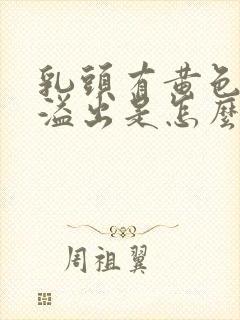 乳頭有黃色
溢出是怎麼
周祖翼